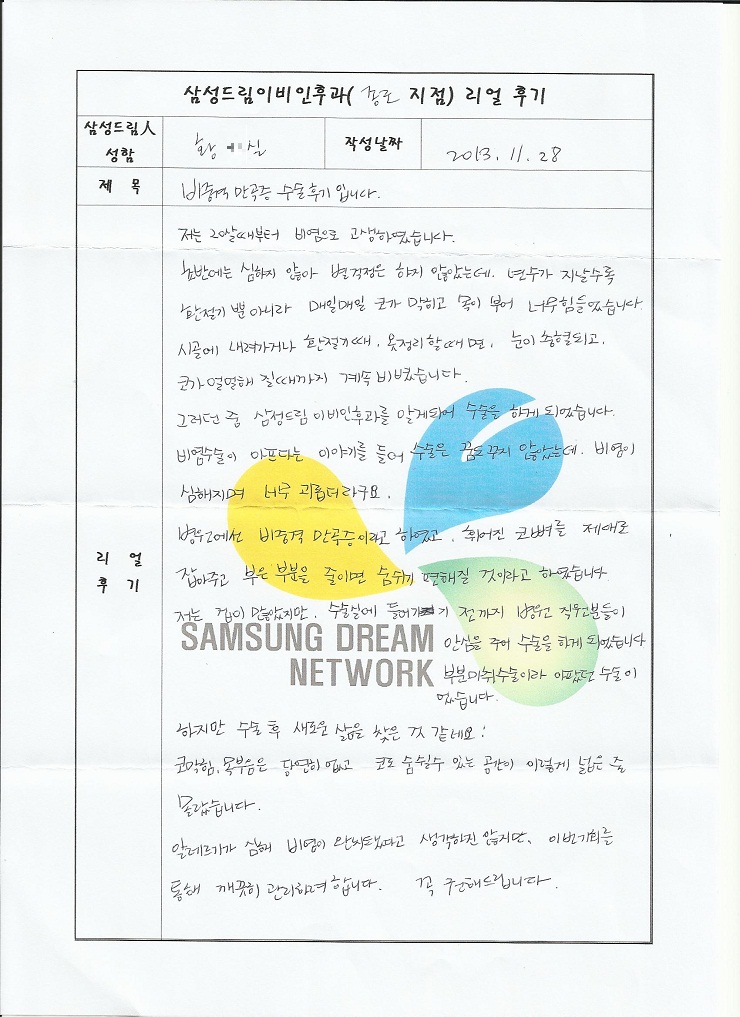 삼성드림이비인후과( 종로 지점) 리얼 후기
삼성드림人 성함
황 실
작성날짜
2013. 11. 28
제 목
비중격 만곡증 수술후기 입니다.
리 얼 후 기
저는 20살때부터 비염으로 고생하였습니다.
초반에는 심하지 않아 별걱정은 하지 않았는데. 년수가 지날수록
환절기 뿐 아니라 매일매일 코가 막히고 목이 부어 너무힘들었습니다.
시골에 내려가거나 환절기때, 옷정리할때면, 눈이 충혈되고,
코가 얼얼해 질때까지 계속 비볐습니다.
그러던 중 삼성드림이비인후과를 알게되어 수술을 하게 되었습니다.
비염수술이 아프다는 이야기를 들어 수술은 꿈도꾸지 않았는데. 비염이
심해지며 너무 괴롭더라구요.
병원에서 비중격 만곡증이라고 하였고, 휘어진 코뼈를 제대로
잡아주고 부은 부분을 줄이면 숨쉬기 편해질 것이라고 하였습니다.
저는 겁이 많았지만. 수술실에 들어가기 전까지 병원 직원분들이
안심을 주어 수술을 하게 되었습니다
부분마취수술이라 아팠던 수술이
었습니다.
SAMSUNG DREAM
NETWORK
하지만 수술 후 새로운 삶을 찾은 것 같네요!
코막힘, 목부음은 당연히 없고 코로 숨쉴수 있는 공간이 이렇게 넓은 줄
몰랐습니다.
알레르기가 심해 비염이 완치됐다고 생각하진 않지만, 이번기회를
통해 깨끗히 관리하려 합니다. 꼭 추천해드립니다.